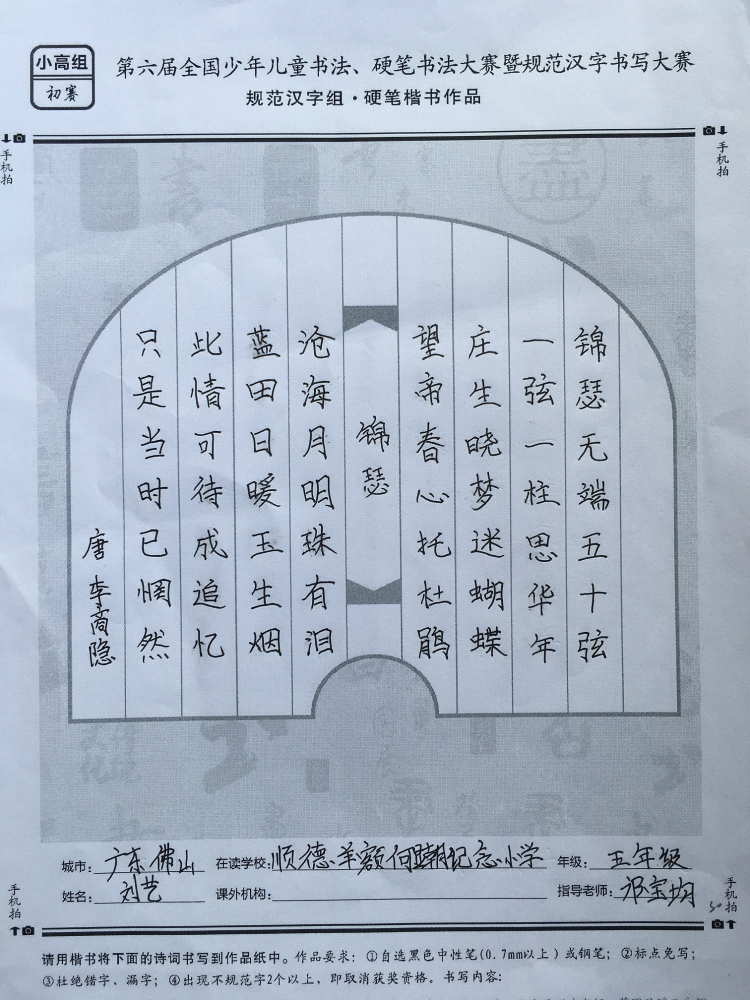 小高组
初赛
第六届全国少年儿童书法、硬笔书法大赛暨规范汉字书写大赛
规范汉字组·硬笔楷书作品
手机拍
手机拍
锦瑟无端五十弦
一弦一柱思华年
庄生晓梦迷蝴蝶
望帝春心托杜鹃
锦瑟
沧海月明珠有泪
蓝田日暖玉生烟
此情可待成追忆
只是当时已惘然
唐 李商隐
城市：广东佛山 在读学校：顺德羊额何纪念小学 年级：五年级
姓名：刘艺 课外机构： 指导老师：邓宝均
手机拍
手机拍
请用楷书将下面的诗词书写到作品纸中。作品要求：①自选黑色中性笔(0.7mm以上)或钢笔；②标点免写；
③杜绝错字、漏字；④出现不规范字2个以上，即取消获奖资格。书写内容：